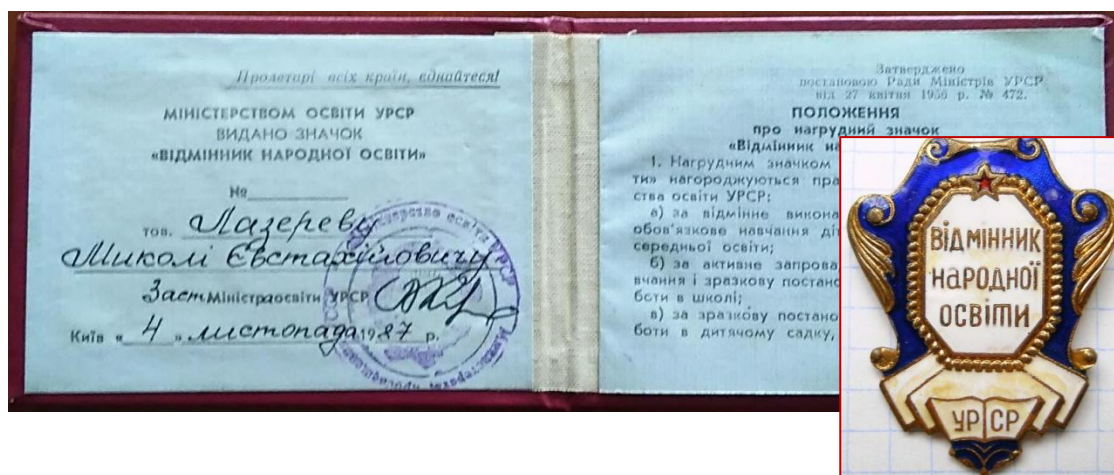 Пролетарі всіх країн, єднайтеся!
МІНІСТЕРСТВОМ ОСВІТИ УРСР
ВИДАНО ЗНАЧОК
«ВІДМІННИК НАРОДНОЇ ОСВІТИ»
№
тов. Лазереву
Миколі Євстахійовичу
Заст. Міністра освіти УРСР
Київ « 4 » листопада 1987 р.
Міністерство освіти УРСР
Затверджено
постановою Ради Міністрів УРСР
від 27 квітня 1956 р. № 472.
ПОЛОЖЕННЯ
про нагрудний значок
«Відмінник на
1. Нагрудним значком
ти» нагороджуються пра
ства освіти УРСР:
а) за відмінне викона
обов'язкове навчання діт
середньої освіти;
б) за активне запрова
вчання і зразкову постано
боти в школі;
в) за зразкову постано
боти в дитячому садку,
ВІДМІННИК
НАРОДНОЇ
ОСВІТИ
УРСР